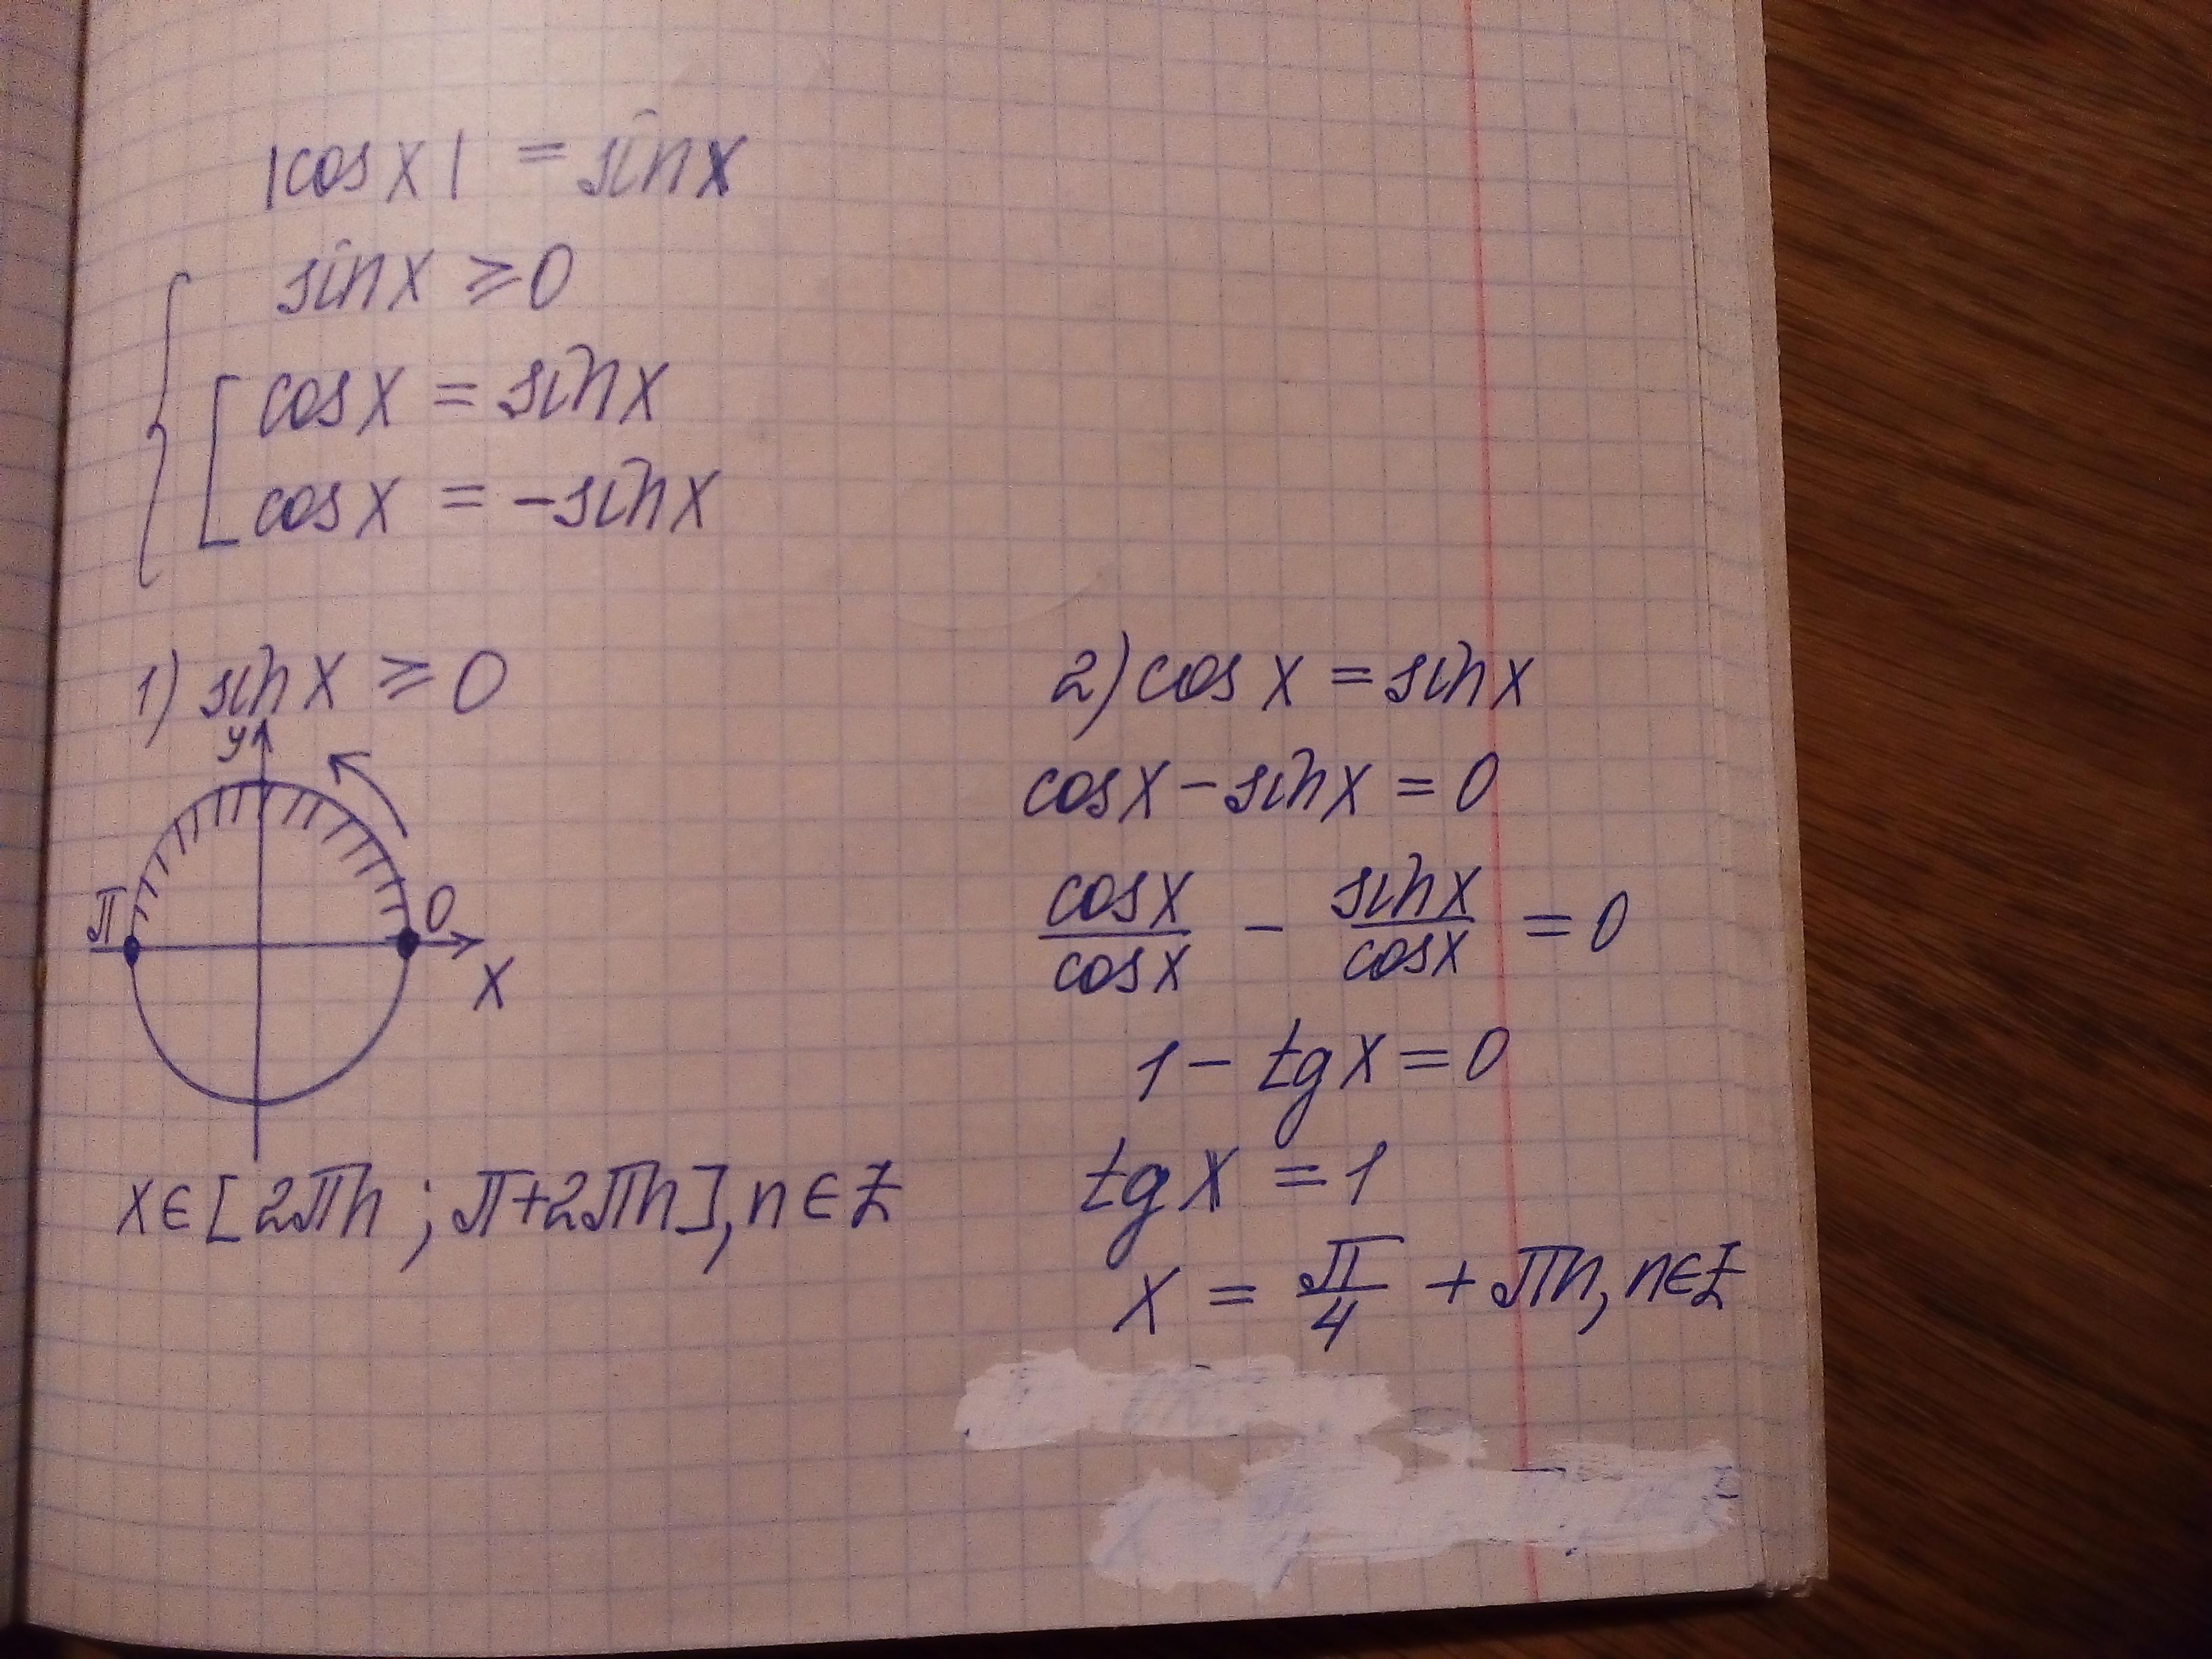 |cos x| = sin x
sin x ≥ 0
cos x = sin x
cos x = -sin x
1) sin x ≥ 0
y
π
0
x
x ∈ [2πn ; π+2πn], n ∈ Z
2) cos x = sin x
cos x - sin x = 0
cos x / cos x - sin x / cos x = 0
1 - tg x = 0
tg x = 1
x = π/4 + πn, n ∈ Z